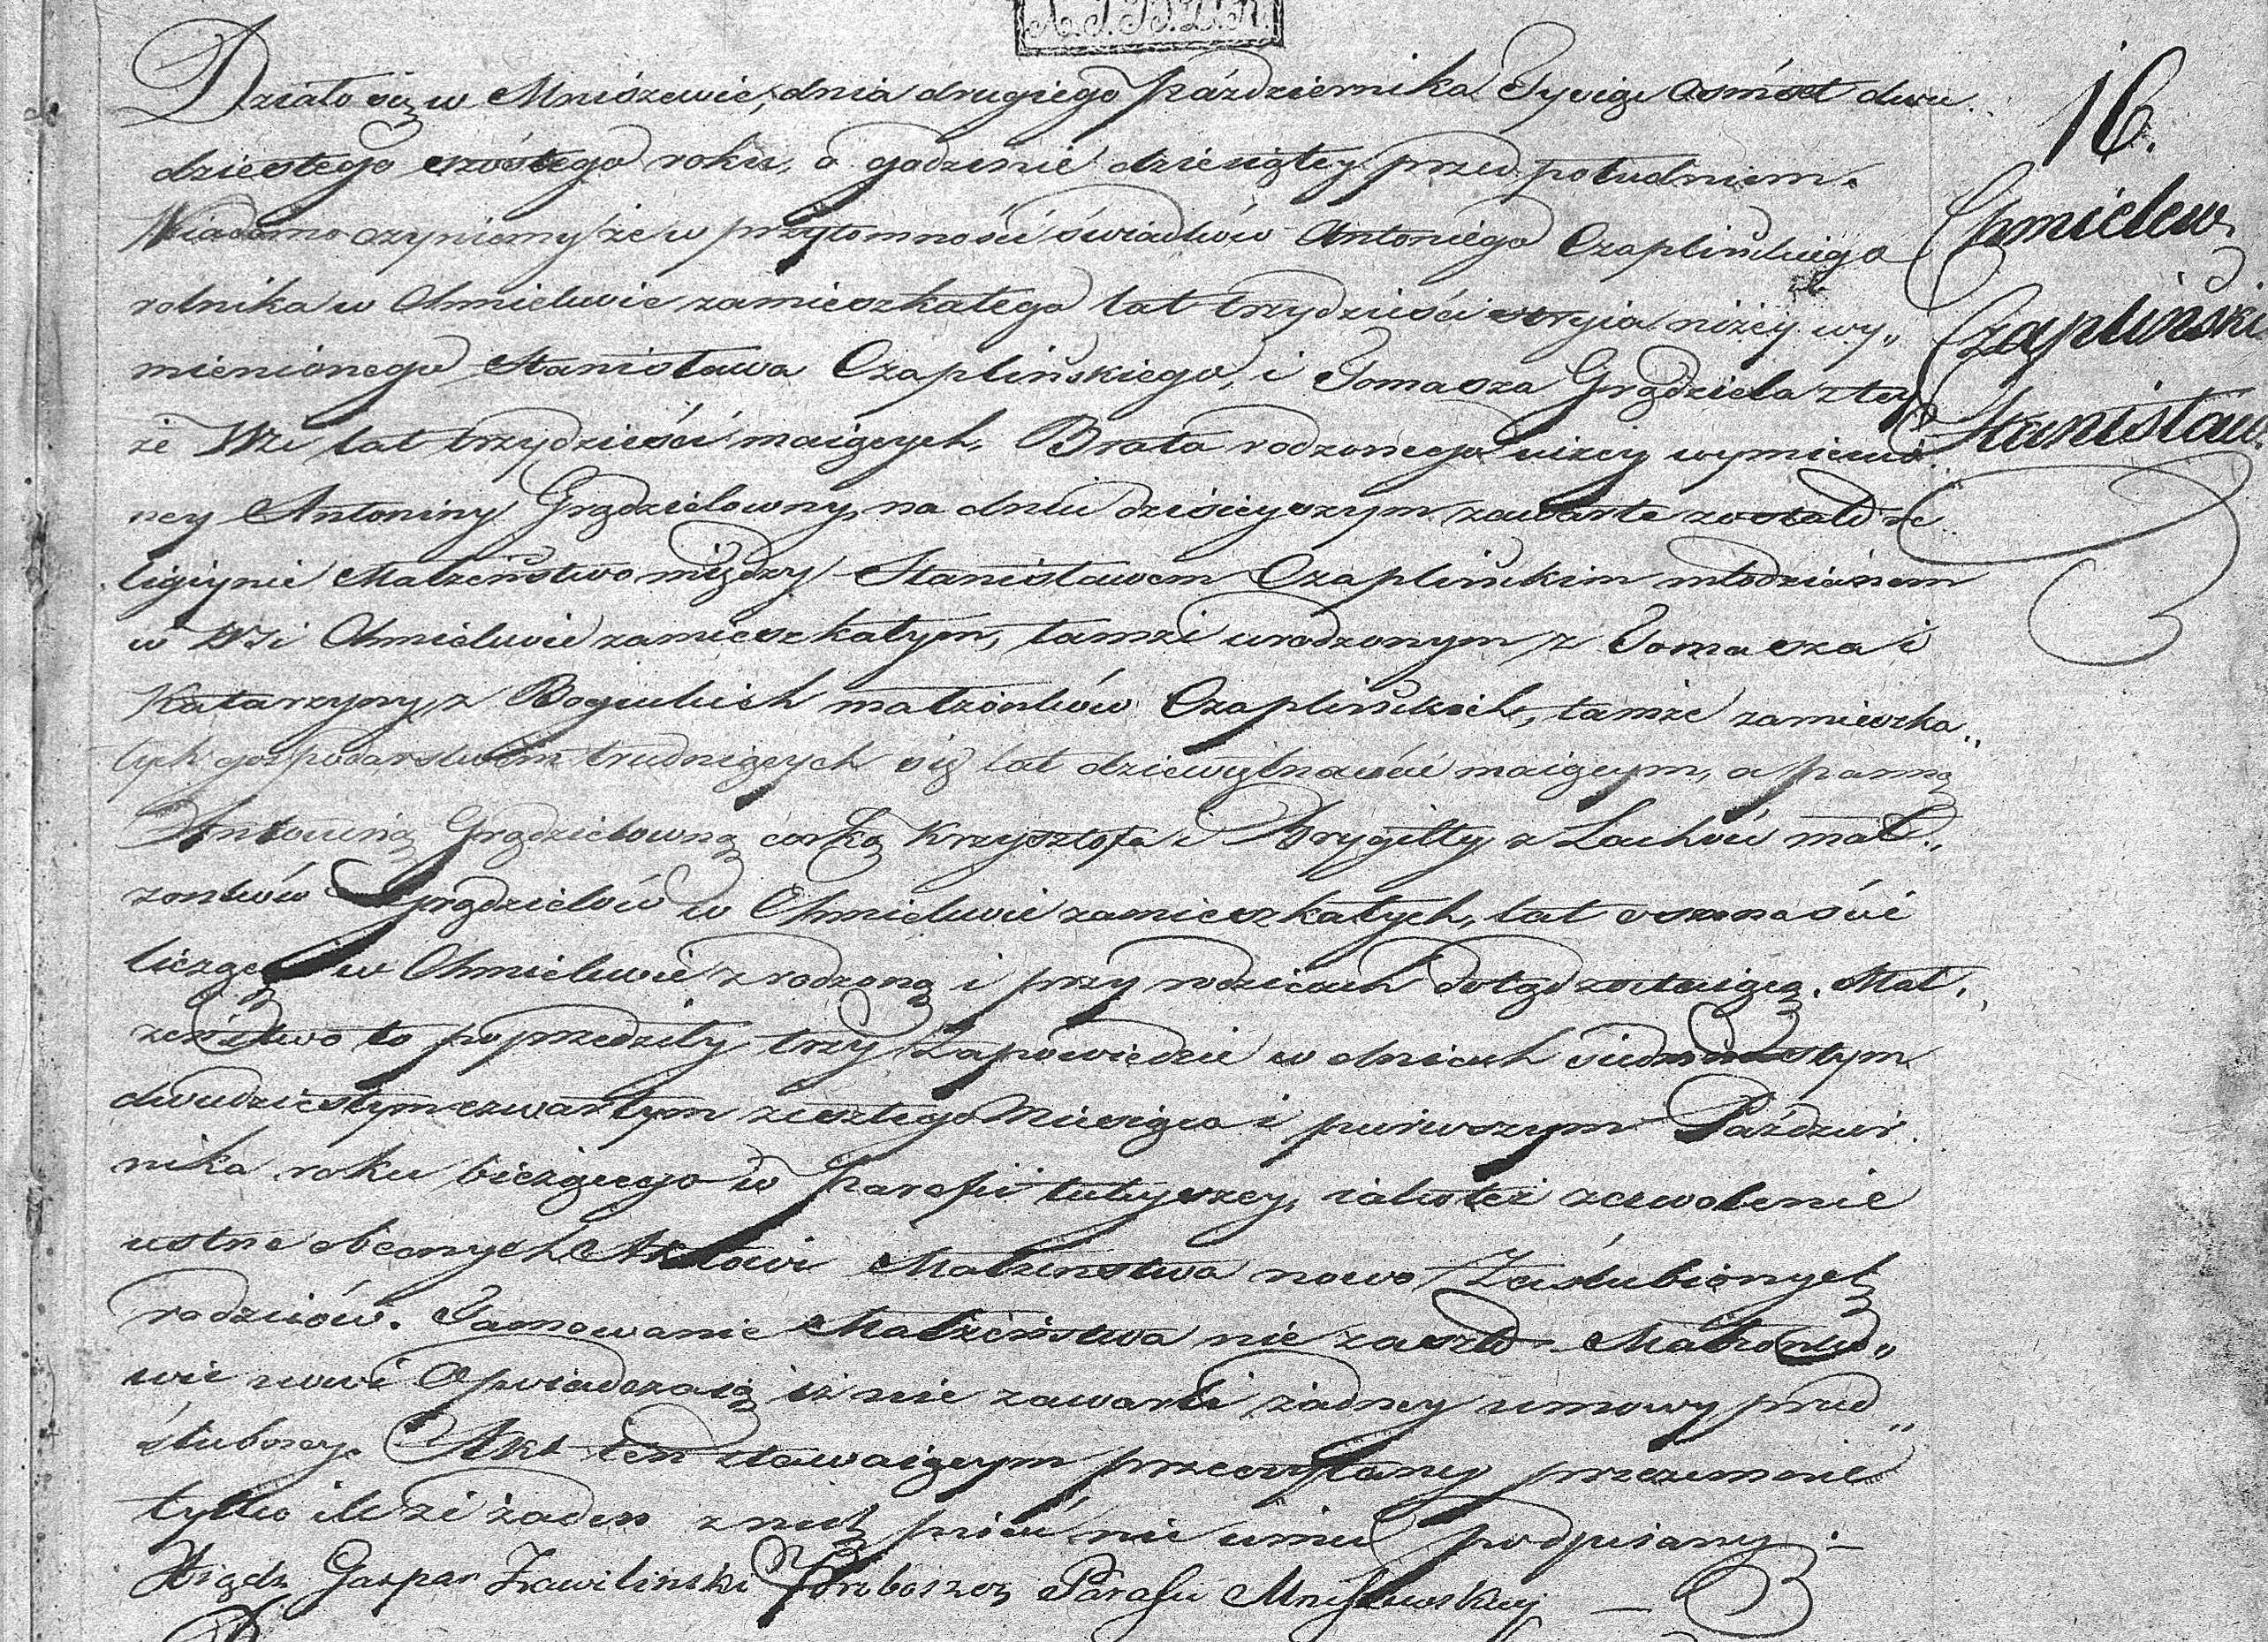 16.
Chmielew.
Czapliński
Stanisław.
Działo się w Mniszewie, dnia drugiego Października Tysiąc osmset dwu
dziestego szóstego roku, o godzinie dziewiątey przed południem.
Wiadomo czyniemy że w przytomności świadków Antoniego Czaplińskiego
rolnika w Chmielewie zamieszkałego lat trzydzieści stryia niżey wy„
mienionego Stanisława Czaplińskiego, i Tomasza Grądziela z tey
że Wsi lat trzydzieści maiących, Brata rodzonego niżey wymienio
ney Antoniny Grądzielowny, na dniu dzisieyszym zawarte zostało re
ligiynie Małżeństwo między Stanisławem Czaplińskim młodzianem
w Wsi Chmielewie zamieszkałym, tamże urodzonym z Tomasza i
Katarzyny z Boguckich małżonków Czaplińskich, tamże zamieszka„
łych gospodarstwem trudniących się lat dziewiętnaście maiącym, a panną
Antoniną Grądzielowną corką Krzysztofa i Brygitty z Lachów mał„
żonków Grądzielów w Chmielewie zamieszkałych, lat osmnaście
liczącą w Chmielewie zrodzoną i przy rodzicach dotąd zostaiącą. Mał„
żeństwo to poprzedziły trzy Zapowiedzie w dniach siedmnastym
dwudziestym czwartym zeszłego Miesiąca i pierwszym Paździer
nika roku bieżącego w Parafii tuteyszey, iakoteż zezwolenie
ustne obecnych Aktowi Małżenstwa nowo Zaślubionych
rodziców. Tamowanie Małżeństwa nie zaszło. Małżonko„
wie nowi Oświadczaią iż nie zawarli żadney umowy przed„
ślubney. Akt ten stawaiącym przeczytany przezemnie
tylko ile że żaden z nich pisać nie umie podpisany. –
Xiądz Gaspar Zawiliński Proboszcz Parafii Mniszewskiey —